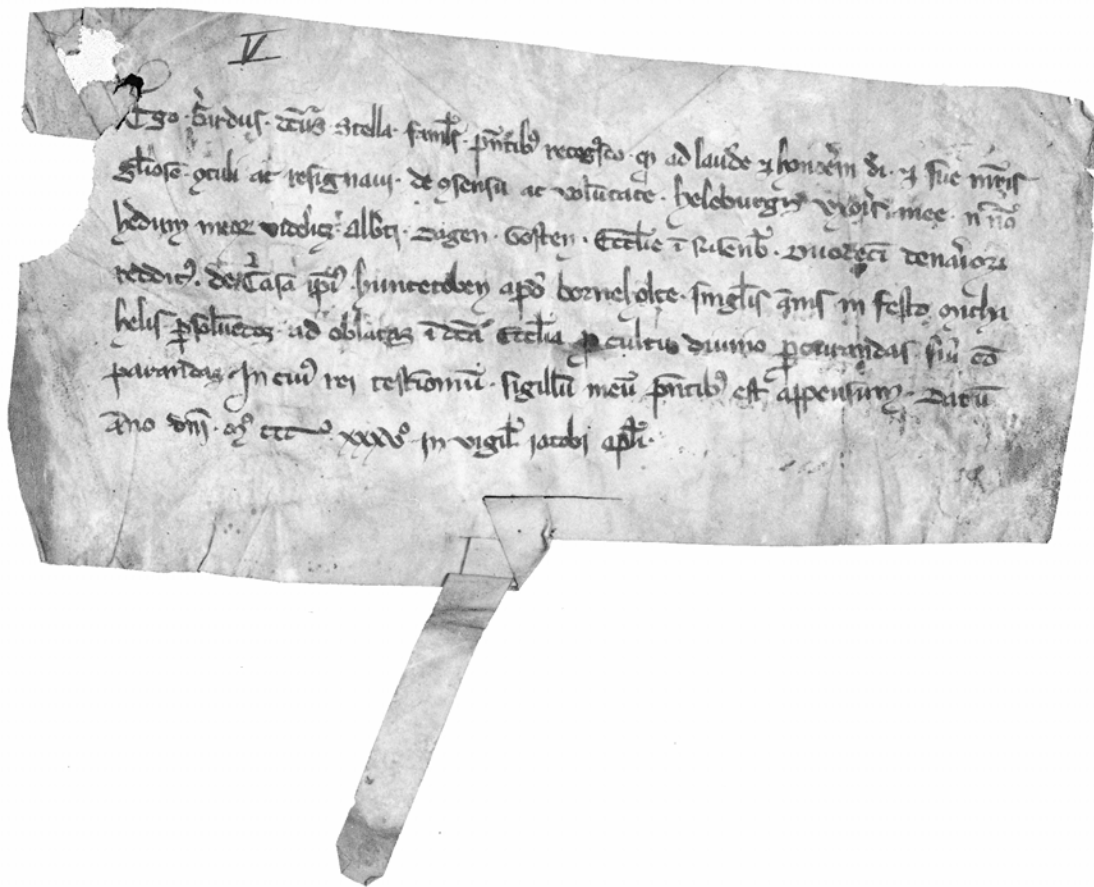 V
Ego · Gerdus · dc̄us · Stella · famłs · pn̄tibȝ recogn̄sco · qd ad laudē ⁊ honorēm di · ⁊ sue mr̄is
głiose · ꝯtuli ac resignaui · de ꝯsensu ac volūtate · heleburgis vxoris · mee · n̄ nō
hēdum meor videliȝ · Alb̄ti · Dagen · Gosten · Ecclīe ī · duorū denarior
redditꝰ · de Casa ip̄iꝰ hunteroben apd̄ borneholte · singłis ānis in festo micha
helis ꝑsoluēdos · ad oblatas ī dc̄a Ecc̄lia ꝓ cultu diuino ꝑcurandas siū cō
parandas · In cuiꝰ rei testiomū · sigillū meū pn̄tibȝ est appensum · Datū
Āno dn̄i · mͦ cccͦ xxxvͦ · in vigił iacobi apłi ·